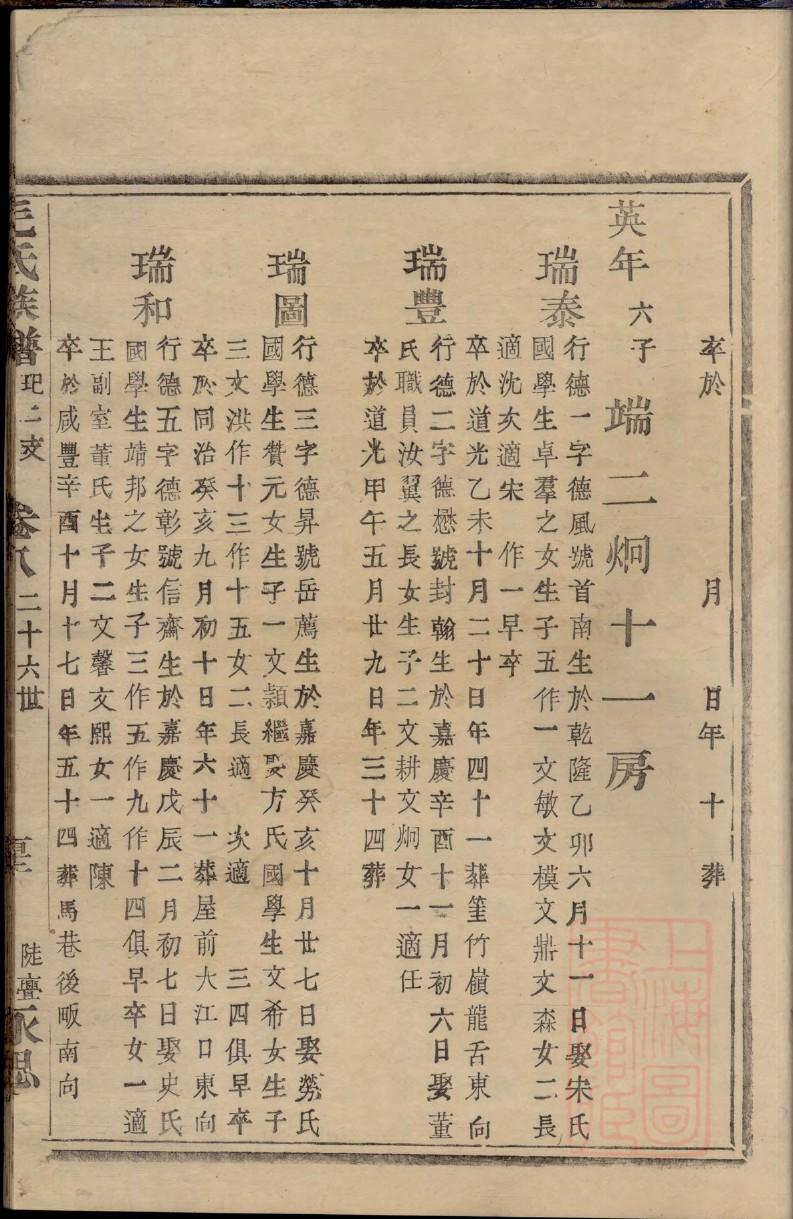 卒於　月　日年　十　葬
英年　六子　端二炯十一房
瑞泰
行德一字德風號首南生於乾隆乙卯六月十一日娶宋氏
國學生卓羣之女生子五作一文敏文模文鼎文森女二長
適沈次適宋　作一早卒
卒於道光乙未十月二十日年四十一葬篁竹嶺龍舌東向
瑞豐
行德二字德懋號封翰生於嘉慶辛酉十一月初六日娶董
氏職員汝翼之長女生子二文耕文炯女一適任
卒於道光甲午五月廿九日年三十四葬
瑞圖
行德三字德昇號岳薦生於嘉慶癸亥十月廿七日娶勞氏
國學生贊元女生子一文穎繼娶方氏國學生文希女生子
三文洪作十三作十五女二長適　次適　三四俱早卒
卒於同治癸亥九月初十日年六十一葬屋前大江口東向
瑞和
行德五字德彰號信齋生於嘉慶戊辰二月初七日娶史氏
國學生靖邦之女生子三作五作九作十四俱早卒女一適
王副室董氏生子二文馨文熙女一適陳
卒於咸豐辛酉十月十七日年五十四葬馬巷後畈南向
毛氏族譜　玘二支　卷八　二十六世　陡亹　永思
上海圖書館藏